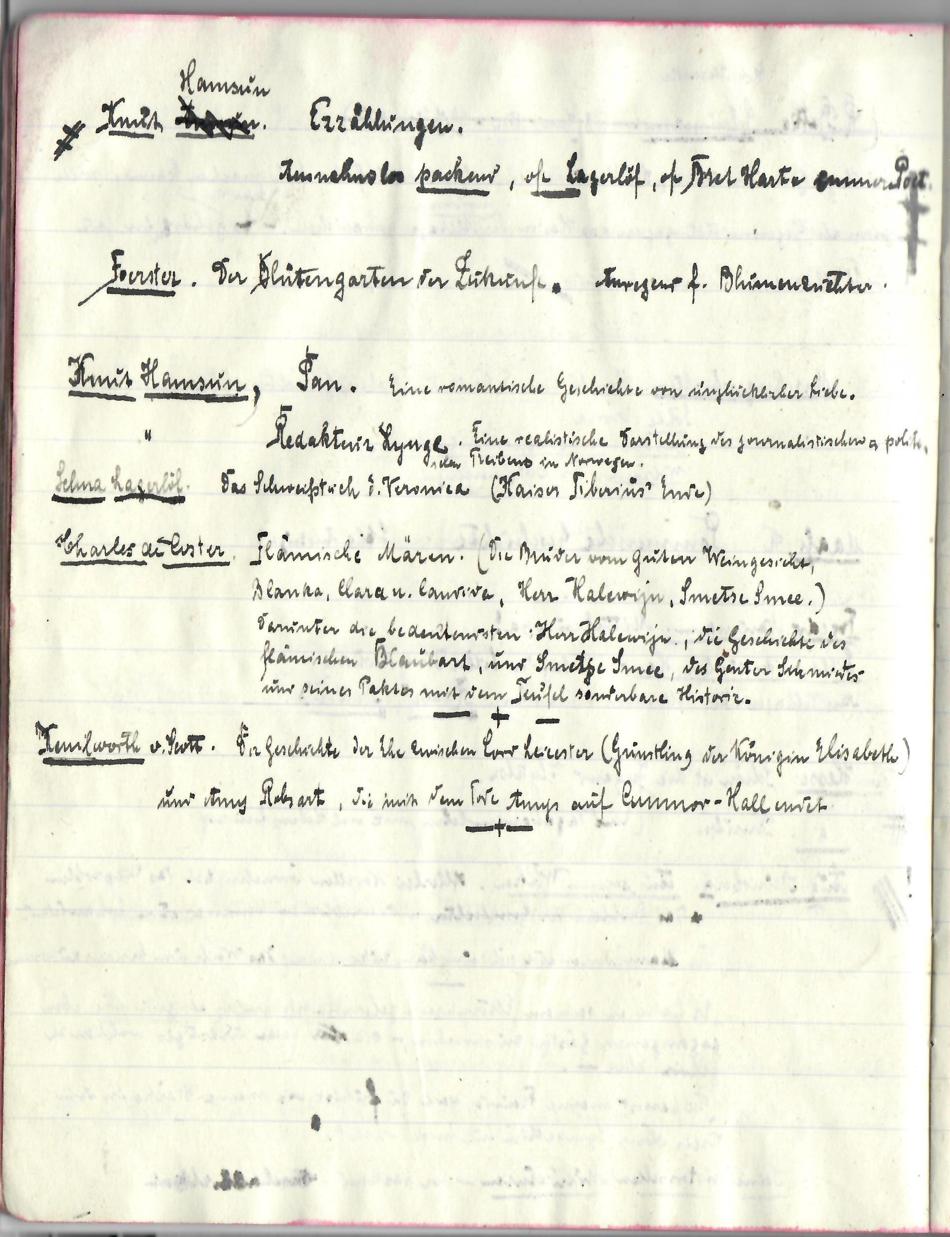 Hamsun
Knut. Erzählungen.
Ausnahmslos packend, oft Lagerlöf, oft Bret Harte immer Poet.
Foerster. Der Blütengarten der Zukunft. Anregend f. Blumenzüchter.
Knut Hamsun, Pan. Eine romantische Geschichte von unglücklicher Liebe.
" Redakteur Lynge. Eine realistische Darstellung des journalistischen u politi-
schen Treibens in Norwegen.
Selma Lagerlöf. Das Schweißtuch d. Veronica (Kaiser Tiberius' Ende)
Charles de Coster. Flämische Mären. (Die Brüder vom Guten Weingesicht,
Blanka, Clara u. Candida, Herr Halewijn, Smetse Smee.)
Darunter die bedeutendsten Herr Halewijn, die Geschichte des
flämischen Blaubart, und Smetse Smee, des Genter Schmiedes
und seines Paktes mit dem Teufel sonderbare Historie.
Kenilworth v. Scott. Die Geschichte der Ehe zwischen Lord Leicester (Günstling der Königin Elisabeth)
und Amy Robsart, die mit dem Tode Amys auf Cumnor-Hall endet